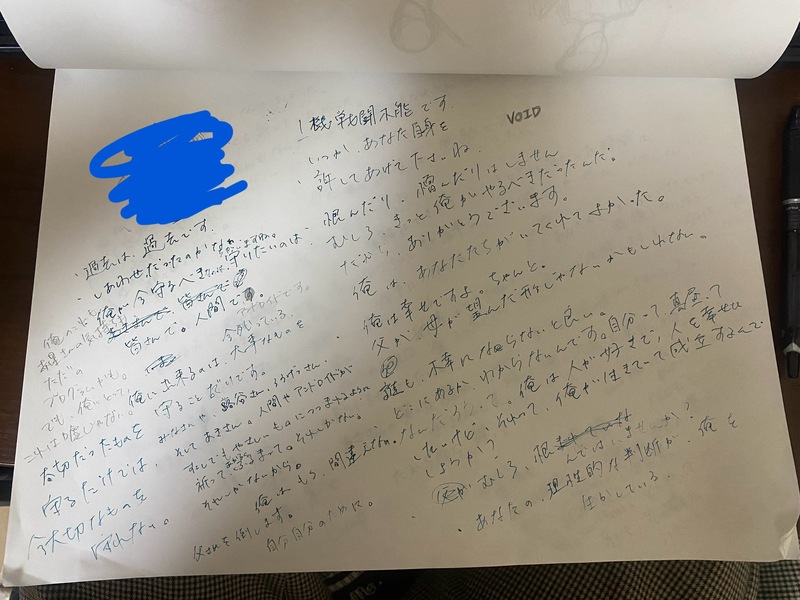 1機、戦闘不能です。
VOID
・いつか、あなた自身を
許してあげてくださいね。
・恨んだり、憎んだりはしません
むしろ、きっと俺がやるべきだったんだ。
だから、ありがとうございます。
俺は、あなたたちがいてくれてよかった。
・俺は幸せですよ。ちゃんと。
父が、母が望んだ形じゃないかもしれない。
・誰も、不幸にならないと良い。
・どこにあるかわからないんです。自分って真
なんだろうって。俺は人が好きで、人を幸せ
したいけど、それって、俺が生きていて成立するんで
しょうか?
・むしろ、恨
んではいませんか?
・あなたの、理性的な判断が、俺を
生かしている。
・過去は、過去です。
・しあわせだったのかなぁ
俺が今守るべき 守りたいのは
皆さんで。人間で
アンドロイドです。
今、生きている。
俺のことも
ただの
プログラムかも。
でも、俺にとって
これは嘘じゃない。
俺に出来るのは、大事なものを
守ることだけです。
みなさんや
そして あきさん。人間やアンドロイドが
すこしでもやさしいものにつつまれるように
祈って
それしかないから。
大切だったものを
守るだけでは、
今大切なものを
守れない。
俺はもう、間違えない。
父さんを倒します。
自分自分のために。